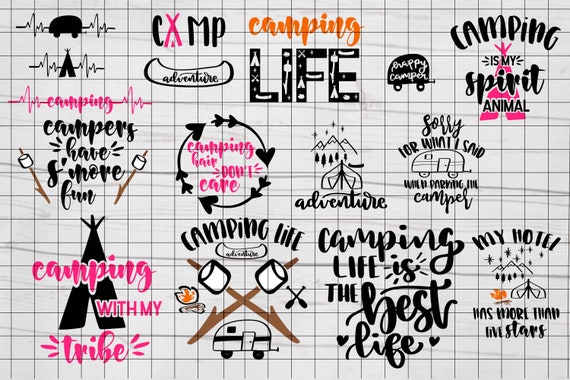 CAMP
camping
LIFE
adventure
happy
camper
CAMPING
IS MY
spirit
ANIMAL
camping
campers
have
s'more
fun
camping
hair
DON'T
care
adventure
Sorry
FOR WHAT I SAID
WHEN PARKING THE
camper
camping
WITH MY
tribe
CAMPING LIFE
adventure
camping
LIFE is
THE best
life
MY HOTEL
HAS MORE THAN
five stars